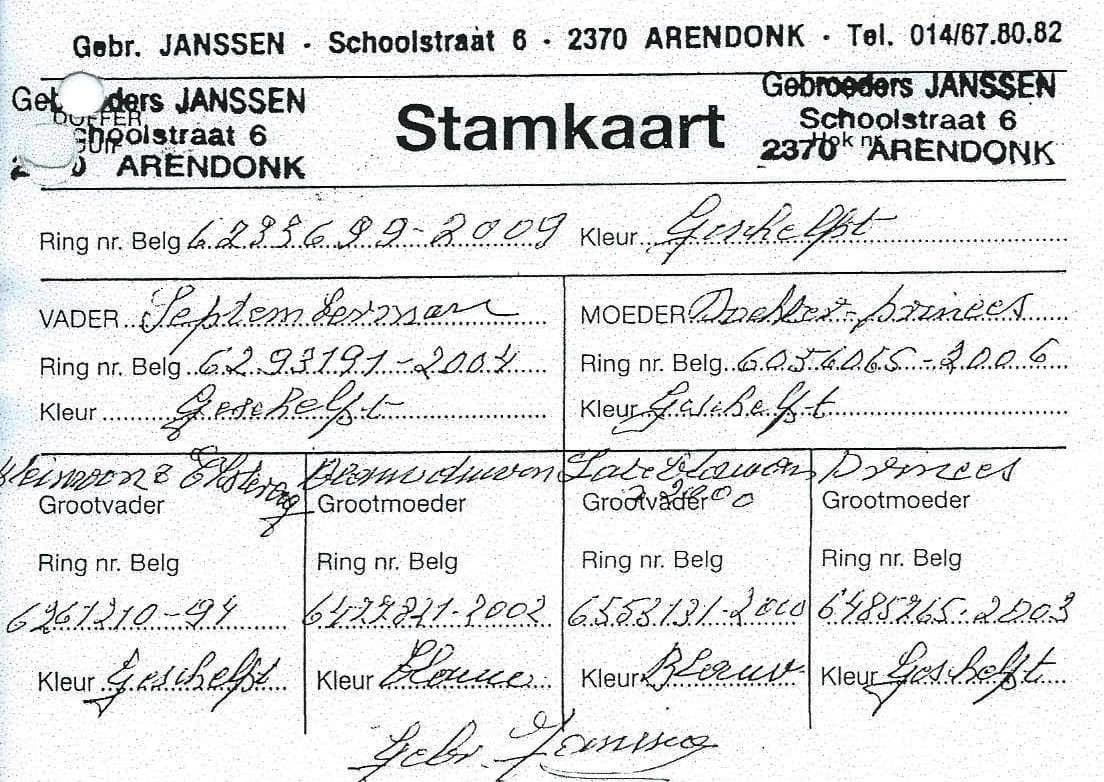 Gebr. JANSSEN · Schoolstraat 6 · 2370 ARENDONK · Tel. 014/67.80.82
ders JANSSEN
Schoolstraat 6
ARENDONK
Stamkaart
Gebroeders JANSSEN
Schoolstraat 6
Hok nr.
2370 ARENDONK
Ring nr. Belg 6233699-2009 Kleur Geschelpt
VADER Septemberman MOEDER Dochter princes
Ring nr. Belg 6293191-2004 Ring nr. Belg 6056065-2006
Kleur Geschelpt Kleur Geschelpt
Princes
Grootvader Grootmoeder Grootvader Grootmoeder
Ring nr. Belg Ring nr. Belg Ring nr. Belg Ring nr. Belg
6261210-94 -2002 6553131- 6485265-2003
Kleur Geschelpt Kleur Kleur Blauw Kleur Geschelpt
Gebr. Janssen